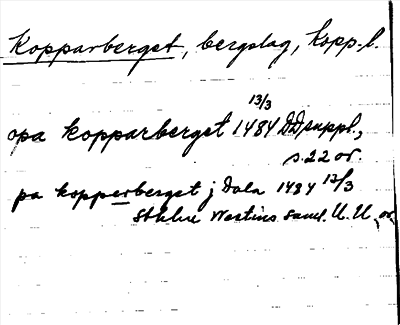 Kopparberget, bergslag, Kopp. l.
13/3
opa kopparberget 1484 DD suppl.,
s. 22 or.
pa kopperberget j Dala 1484 13/3
Sthlm Westins saml. U.U. or